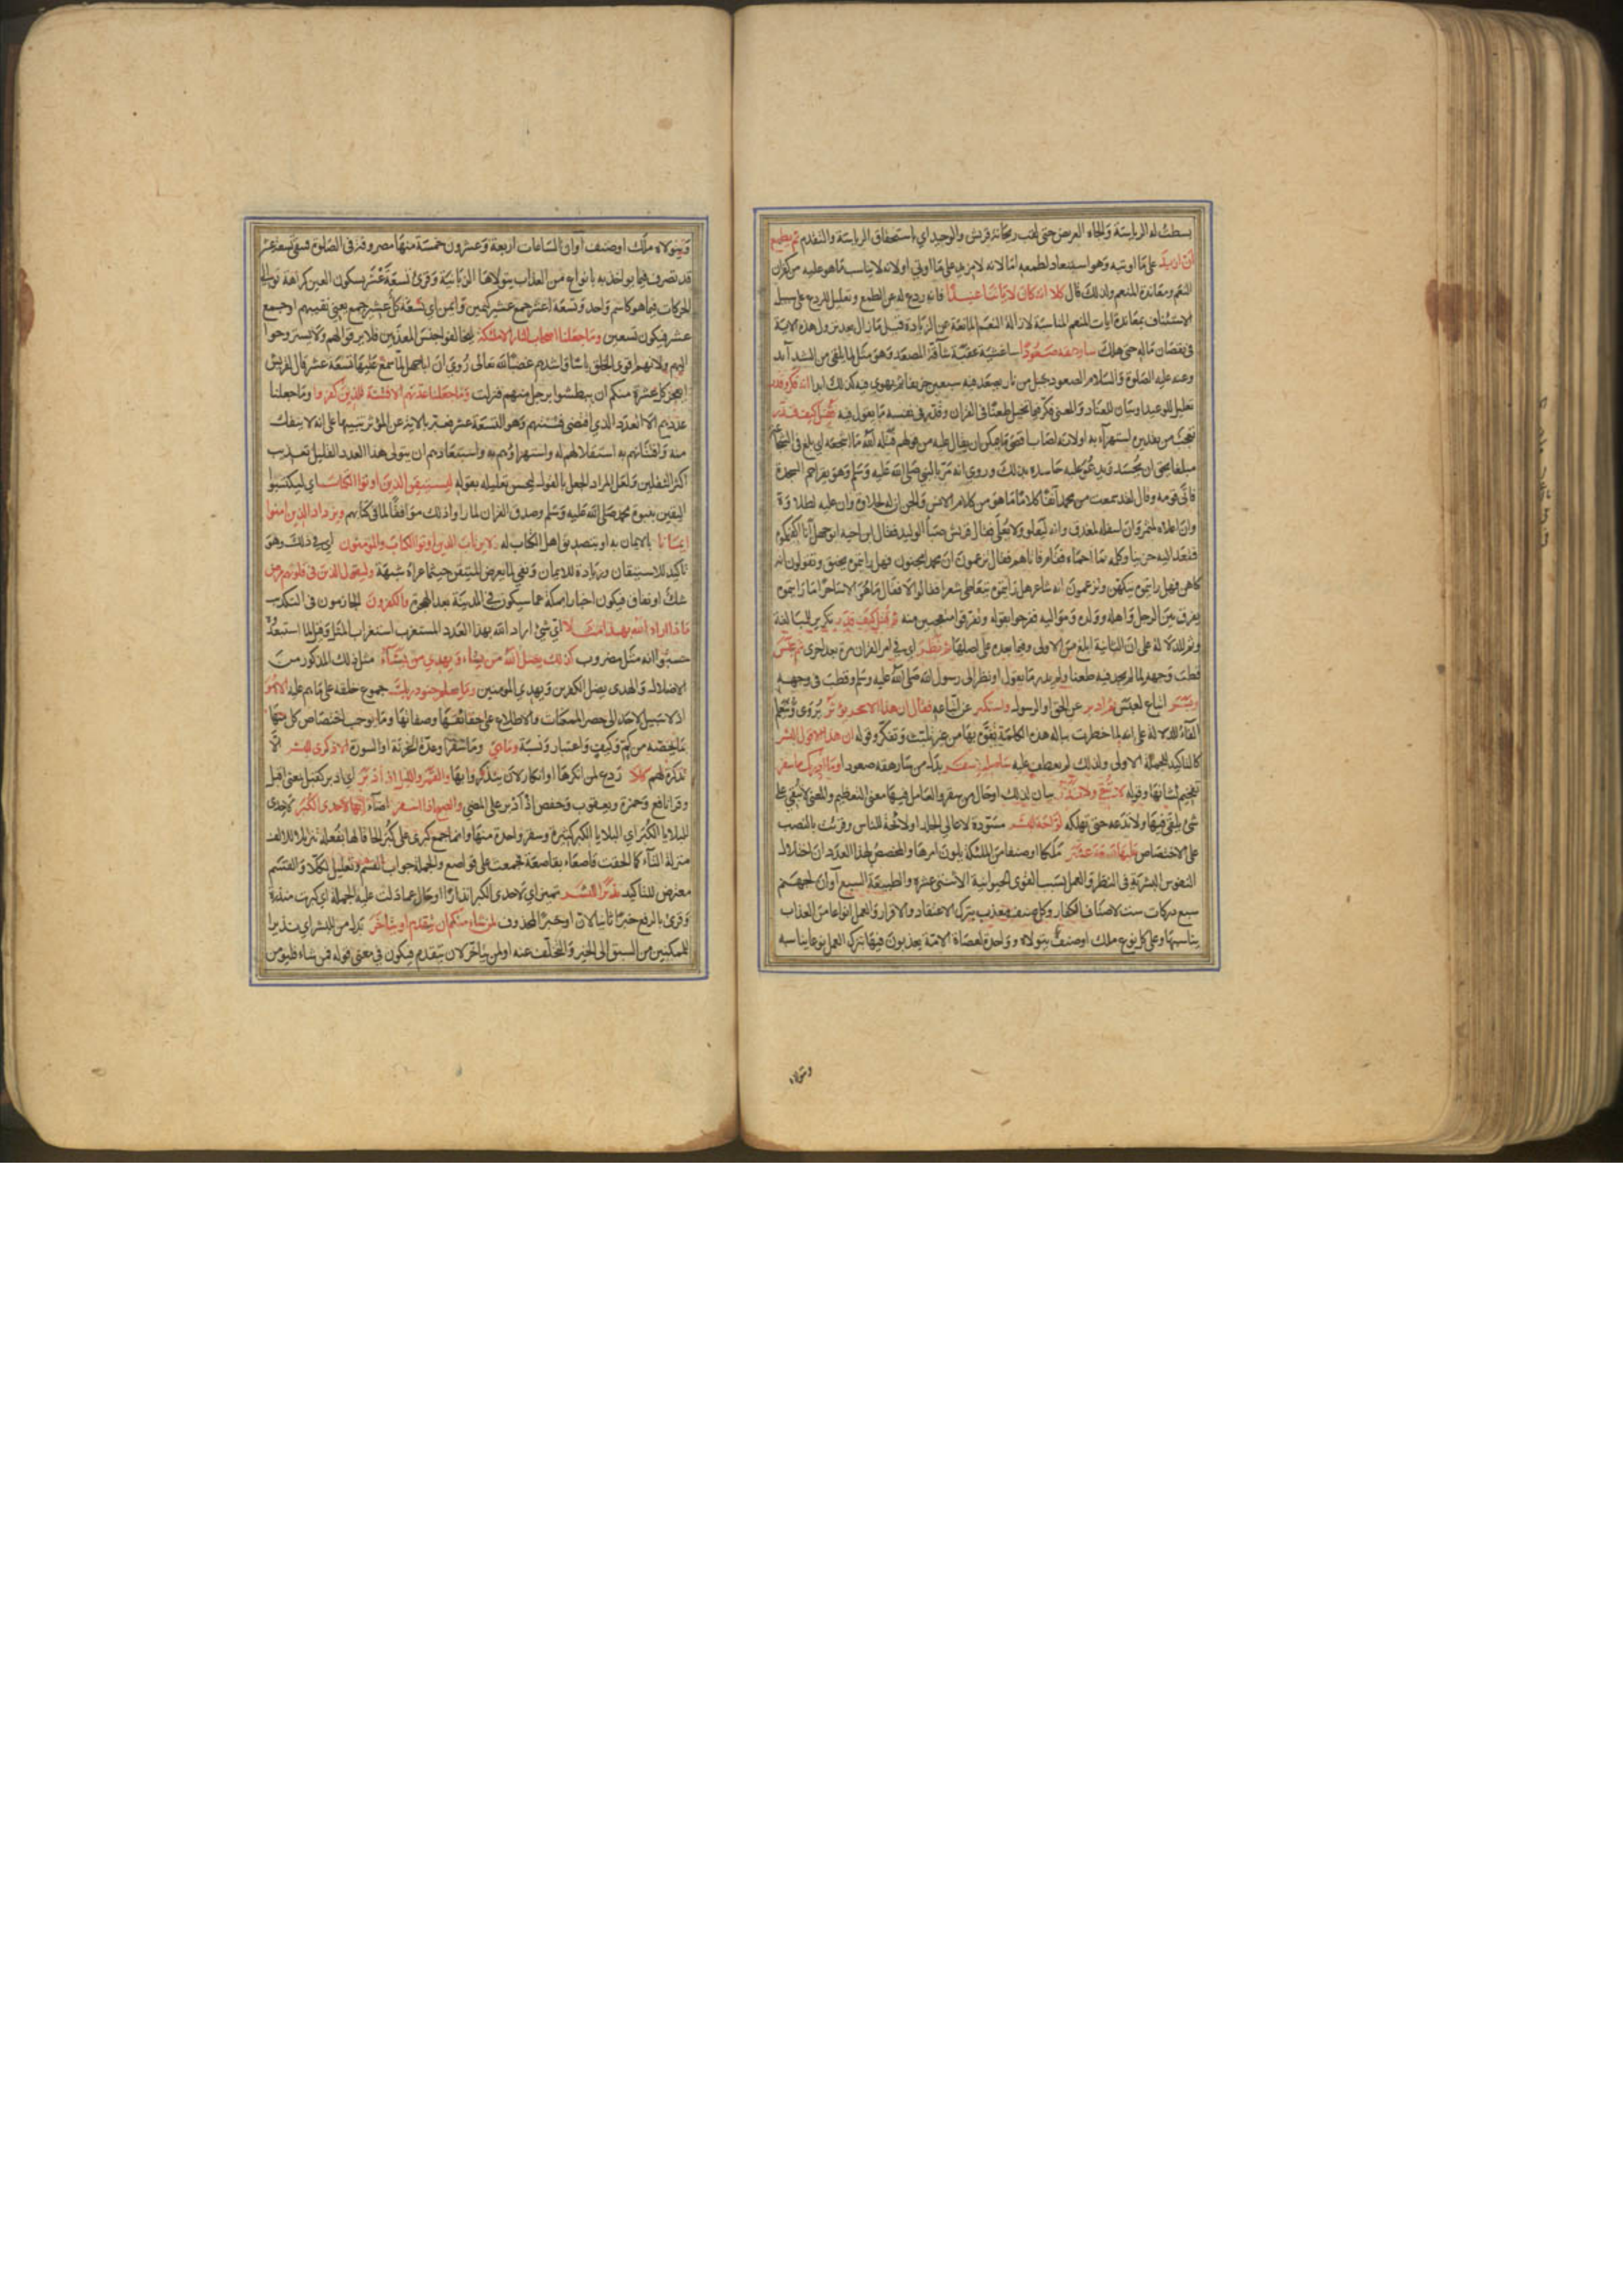 بسطت له الرياسة والجاه العريض حتى لقب ريحانة قريش والوحيد اي باستحقاق الرياسة والتقدم ثم يطمع
ان ازيد على ما اوتيه وهو استبعاد لطمعه اما لانه لا مزيد على ما اوتي او لانه لا يناسب ما هو عليه من كفران
النعم ومعاندة المنعم ولذلك قال كلا انه كان لاياتنا عنيدا فانه ردع له عن الطمع وتعليل للردع على سبيل
الاستئناف بمعاندة ايات المنعم المناسبة لازالة النعم المانعة عن الزيادة قيل ما زال بعد نزول هذه الاية
في نقصان ماله حتى هلك سارهقه صعودا ساغشيه عقبة شاقة المصعد وهو مثل لما يلقى من الشدائد
وعنه عليه الصلوة والسلام الصعود جبل من نار يصعد فيه سبعين خريفا ثم يهوي فيه كذلك ابدا انه فكر وقدر
تعليل للوعيد او بيان للعناد والمعنى فكر فيما تخيل طعنا في القران وقدر في نفسه ما يقول فيه فقتل كيف قدر
تعجب من تقديره استهزاء به او لانه اصاب اقصى ما يمكن ان يقال عليه من قولهم قتله الله ما اشجعه اي بلغ في الشجاعة
مبلغا يحق ان يحسد ويدعو عليه حاسده بذلك وروي انه مر بالنبي صلى الله عليه وسلم وهو يقرا حم السجدة
فاتى قومه وقال لقد سمعت من محمد آنفا كلاما ما هو من كلام الانس والجن ان له لحلاوة وان عليه لطلاوة
وان اعلاه لمثمر وان اسفله لمغدق وانه ليعلو ولا يعلى فقال قريش صبأ الوليد فقال ابن اخيه ابو جهل انا اكفيكموه
فقعد اليه حزينا وكلمه بما احماه فقام فاتاهم فقال تزعمون ان محمدا مجنون فهل رايتموه يخنق وتقولون انه
كاهن فهل رايتموه يتكهن وتزعمون انه شاعر هل رايتموه يتعاطى شعرا فقالوا لا فقال ما هو الا ساحر اما رايتموه
يفرق بين الرجل واهله وولده ومواليه ففرحوا بقوله وتفرقوا متعجبين منه ثم قتل كيف قدر تكرير للمبالغة
وثم للدلالة على ان الثانية ابلغ من الاولى وفيما بعده على اصلها ثم نظر اي في امر القران مرة بعد اخرى ثم عبس
قطب وجهه لما لم يجد فيه طعنا ولم يدر ما يقول او نظر الى رسول الله صلى الله عليه وسلم وقطب في وجهه
وبسر اتباع لعبس ثم ادبر عن الحق او الرسول واستكبر عن اتباعه فقال ان هذا الا سحر يؤثر يروى ويتعلم
الفاء للدلالة على انه لما خطرت بباله هذه الكلمة تفوه بها من غير تلبث وتفكر وقوله ان هذا الا قول البشر
كالتاكيد للجملة الاولى ولذلك لم يعطف عليه ساصليه سقر بدل من سارهقه صعودا وما ادريك ما سقر
تفخيم لشانها وقوله لا تبقي ولا تذر بيان لذلك او حال من سقر والعامل فيها معنى التعظيم والمعنى لا تبقي على
شئ يلقى فيها ولا تدعه حتى تهلكه لواحة للبشر مسودة لاعالي الجلد او لائحة للناس وقرئت بالنصب
على الاختصاص عليها تسعة عشر ملكا او صنفا من الملئكة يلون امرها والمخصص لهذا العدد ان اختلال
النفوس البشرية في النظر والعمل بسبب القوى الحيوانية الاثنتي عشرة والطبيعة السبع او ان لجهنم
سبع دركات ست لاصناف الكفار وكل صنف يعذب بترك الاعتقاد والاقرار والعمل انواعا من العذاب
يناسبها وعلى كل نوع ملك او صنف يتولاه وواحدة لعصاة الامة يعذبون فيها بترك العمل نوعا يناسبه
ويتولاه
ويتولاه ملك او صنف او ان الساعات اربعة وعشرون خمسة منها مصروفة في الصلوة فبقي تسعة عشر
قد تصرف فيما يواخذ به بانواع من العذاب يتولاها الزبانية وقرئ تسعة عشر بسكون العين كراهة توالي
الحركات فيما هو كاسم واحد وتسعة اعشر جمع عشير كيمين وايمن اي تسعة كل عشير جمع يعني نقيبهم او جمع
عشر فيكون تسعين وما جعلنا اصحاب النار الا ملئكة ليخالفوا جنس المعذبين فلا يرقوا لهم ولا يستروحوا
اليهم ولانهم اقوى الخلق باسا واشدهم غضبا لله تعالى روي ان ابا جهل لما سمع عليها تسعة عشر قال لقريش
ايعجز كل عشرة منكم ان يبطشوا برجل منهم فنزلت وما جعلنا عدتهم الا فتنة للذين كفروا وما جعلنا
عددهم الا العدد الذي اقتضى فتنتهم وهو التسعة عشر فعبر بالاثر عن المؤثر تنبيها على انه لا ينفك
منه وافتتانهم به استقلالهم له واستهزاؤهم به واستبعادهم ان يتولى هذا العدد القليل تعذيب
اكثر الثقلين ولعل المراد الجعل بالقول ليحسن تعليله بقوله ليستيقن الذين اوتوا الكتاب اي ليكتسبوا
اليقين بنبوة محمد صلى الله عليه وسلم وصدق القران لما راوا ذلك موافقا لما في كتابهم ويزداد الذين امنوا
ايمانا بالايمان به او بتصديق اهل الكتاب له ولا يرتاب الذين اوتوا الكتاب والمؤمنون اي في ذلك وهو
تاكيد للاستيقان وزيادة للايمان ونفي لما يعرض للمتيقن حيثما عراه شبهة وليقول الذين في قلوبهم مرض
شك او نفاق فيكون اخبارا بمكة عما سيكون في المدينة بعد الهجرة والكفرون الجازمون في التكذيب
ماذا اراد الله بهذا مثلا اي شئ اراد الله بهذا العدد المستغرب استغراب المثل وقيل لما استبعدوه
حسبوا انه مثل مضروب كذلك يضل الله من يشاء ويهدي من يشاء مثل ذلك المذكور من
الاضلال والهدى يضل الكفرين ويهدي المومنين وما يعلم جنود ربك جموع خلقه على ما هم عليه الا هو
اذ لا سبيل لاحد الى حصر الممكنات والاطلاع على حقائقها وصفاتها وما يوجب اختصاص كل منها
بما يخصه من كم وكيف واعتبار ونسبة وما هي وما سقر او عدة الخزنة او السورة الا ذكرى للبشر الا
تذكرة لهم كلا ردع لمن انكرها او انكار لان يتذكروا بها والقمر والليل اذ ادبر اي ادبر كقبل بمعنى اقبل
وقرا نافع وحمزة ويعقوب وحفص اذ ادبر على المضي والصبح اذا اسفر اضاء انها لاحدى الكبر لاحدى
البلايا الكبر اي البلايا الكبر كثيرة وسقر واحدة منها وانما جمع كبرى على كبر الحاقا لها بفعلة تنزيلا للالف
منزلة التاء كما الحقت قاصعاء بقاصعة فجمعت على قواصع والجملة جواب القسم او تعليل لكلا والقسم
معترض للتاكيد نذيرا للبشر تمييز اي لاحدى الكبر انذارا او حال عما دلت عليه الجملة اي كبرت منذرة
وقرئ بالرفع خبرا ثانيا لان او خبرا لمحذوف لمن شاء منكم ان يتقدم او يتاخر بدل من للبشر اي نذيرا
للممكنين من السبق الى الخير والتخلف عنه او لمن يتاخر لان يتقدم فيكون في معنى قوله فمن شاء فليؤمن